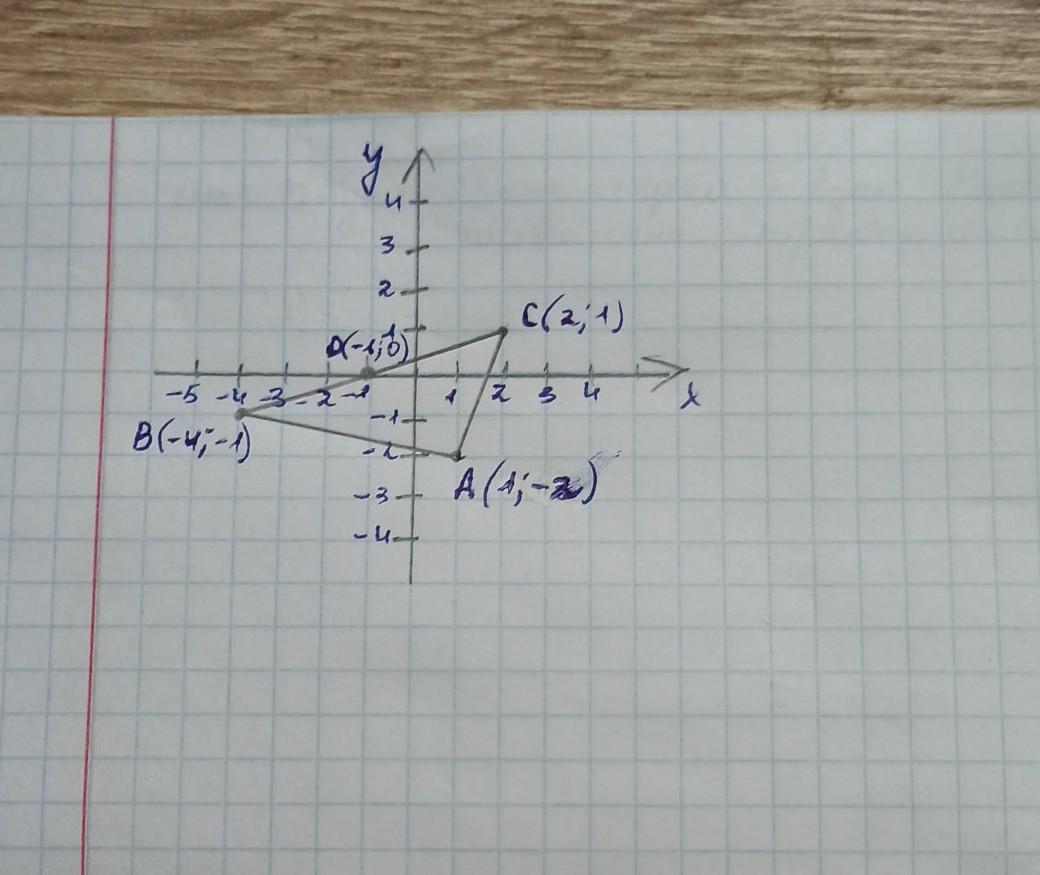 y
4
3
2
1
D(-1;0)
C(2;1)
-5 -4 -3 -2 -1 1 2 3 4 x
-1
B(-4;-1)
-2
A(1;-2)
-3
-4